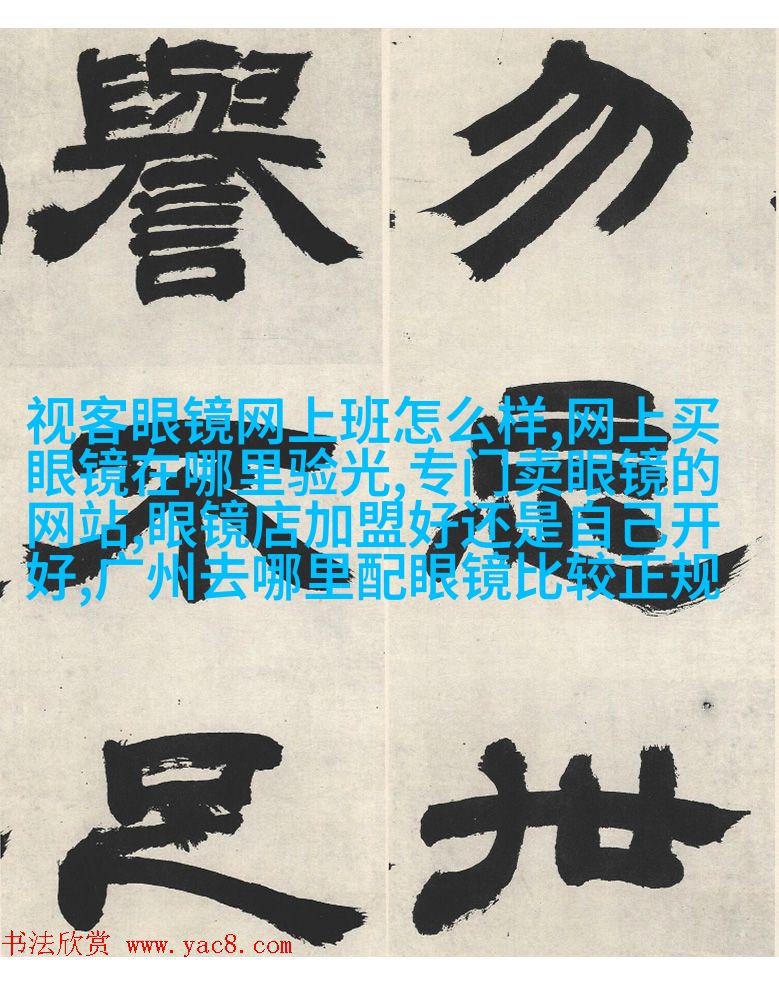 勿
世
譽
不
足
视客眼镜网上班怎么样,网上买
眼镜在哪里验光,专门卖眼镜的
网站,眼镜店加盟好还是自己开
好,广州去哪里配眼镜比较正规
书法欣赏 www.yac8.com